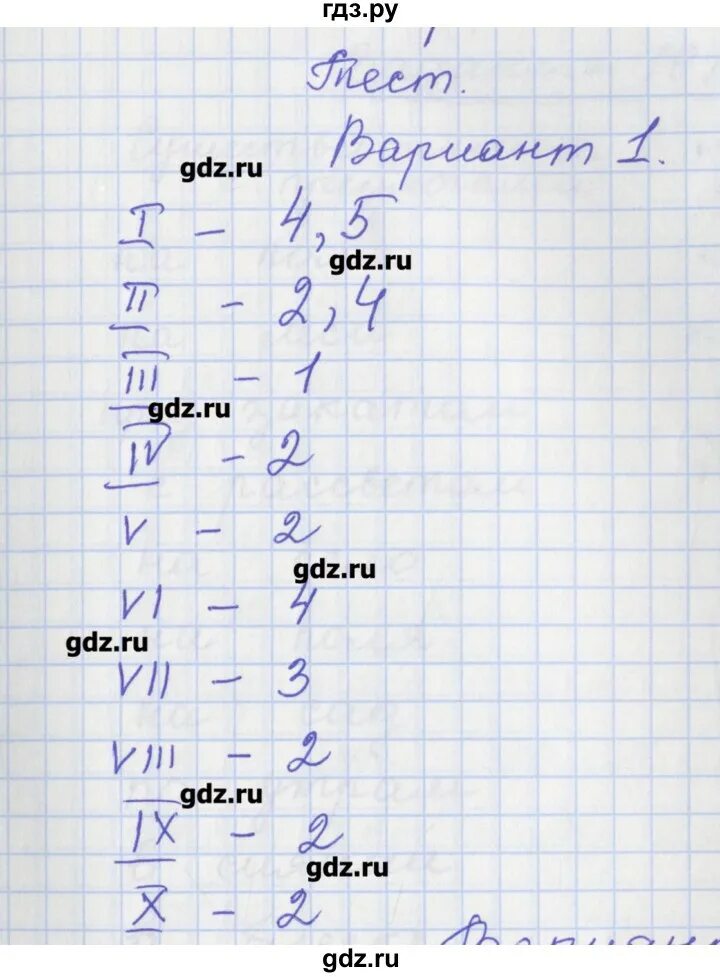 гдз.ру
Тест.
Вариант 1.
gdz.ru
I - 4, 5
gdz.ru
II - 2, 4
III - 1
gdz.ru
IV - 2
V - 2
gdz.ru
VI - 4
gdz.ru
VII - 3
VIII - 2
gdz.ru
IX - 2
gdz.ru
X - 2
gdz.ru